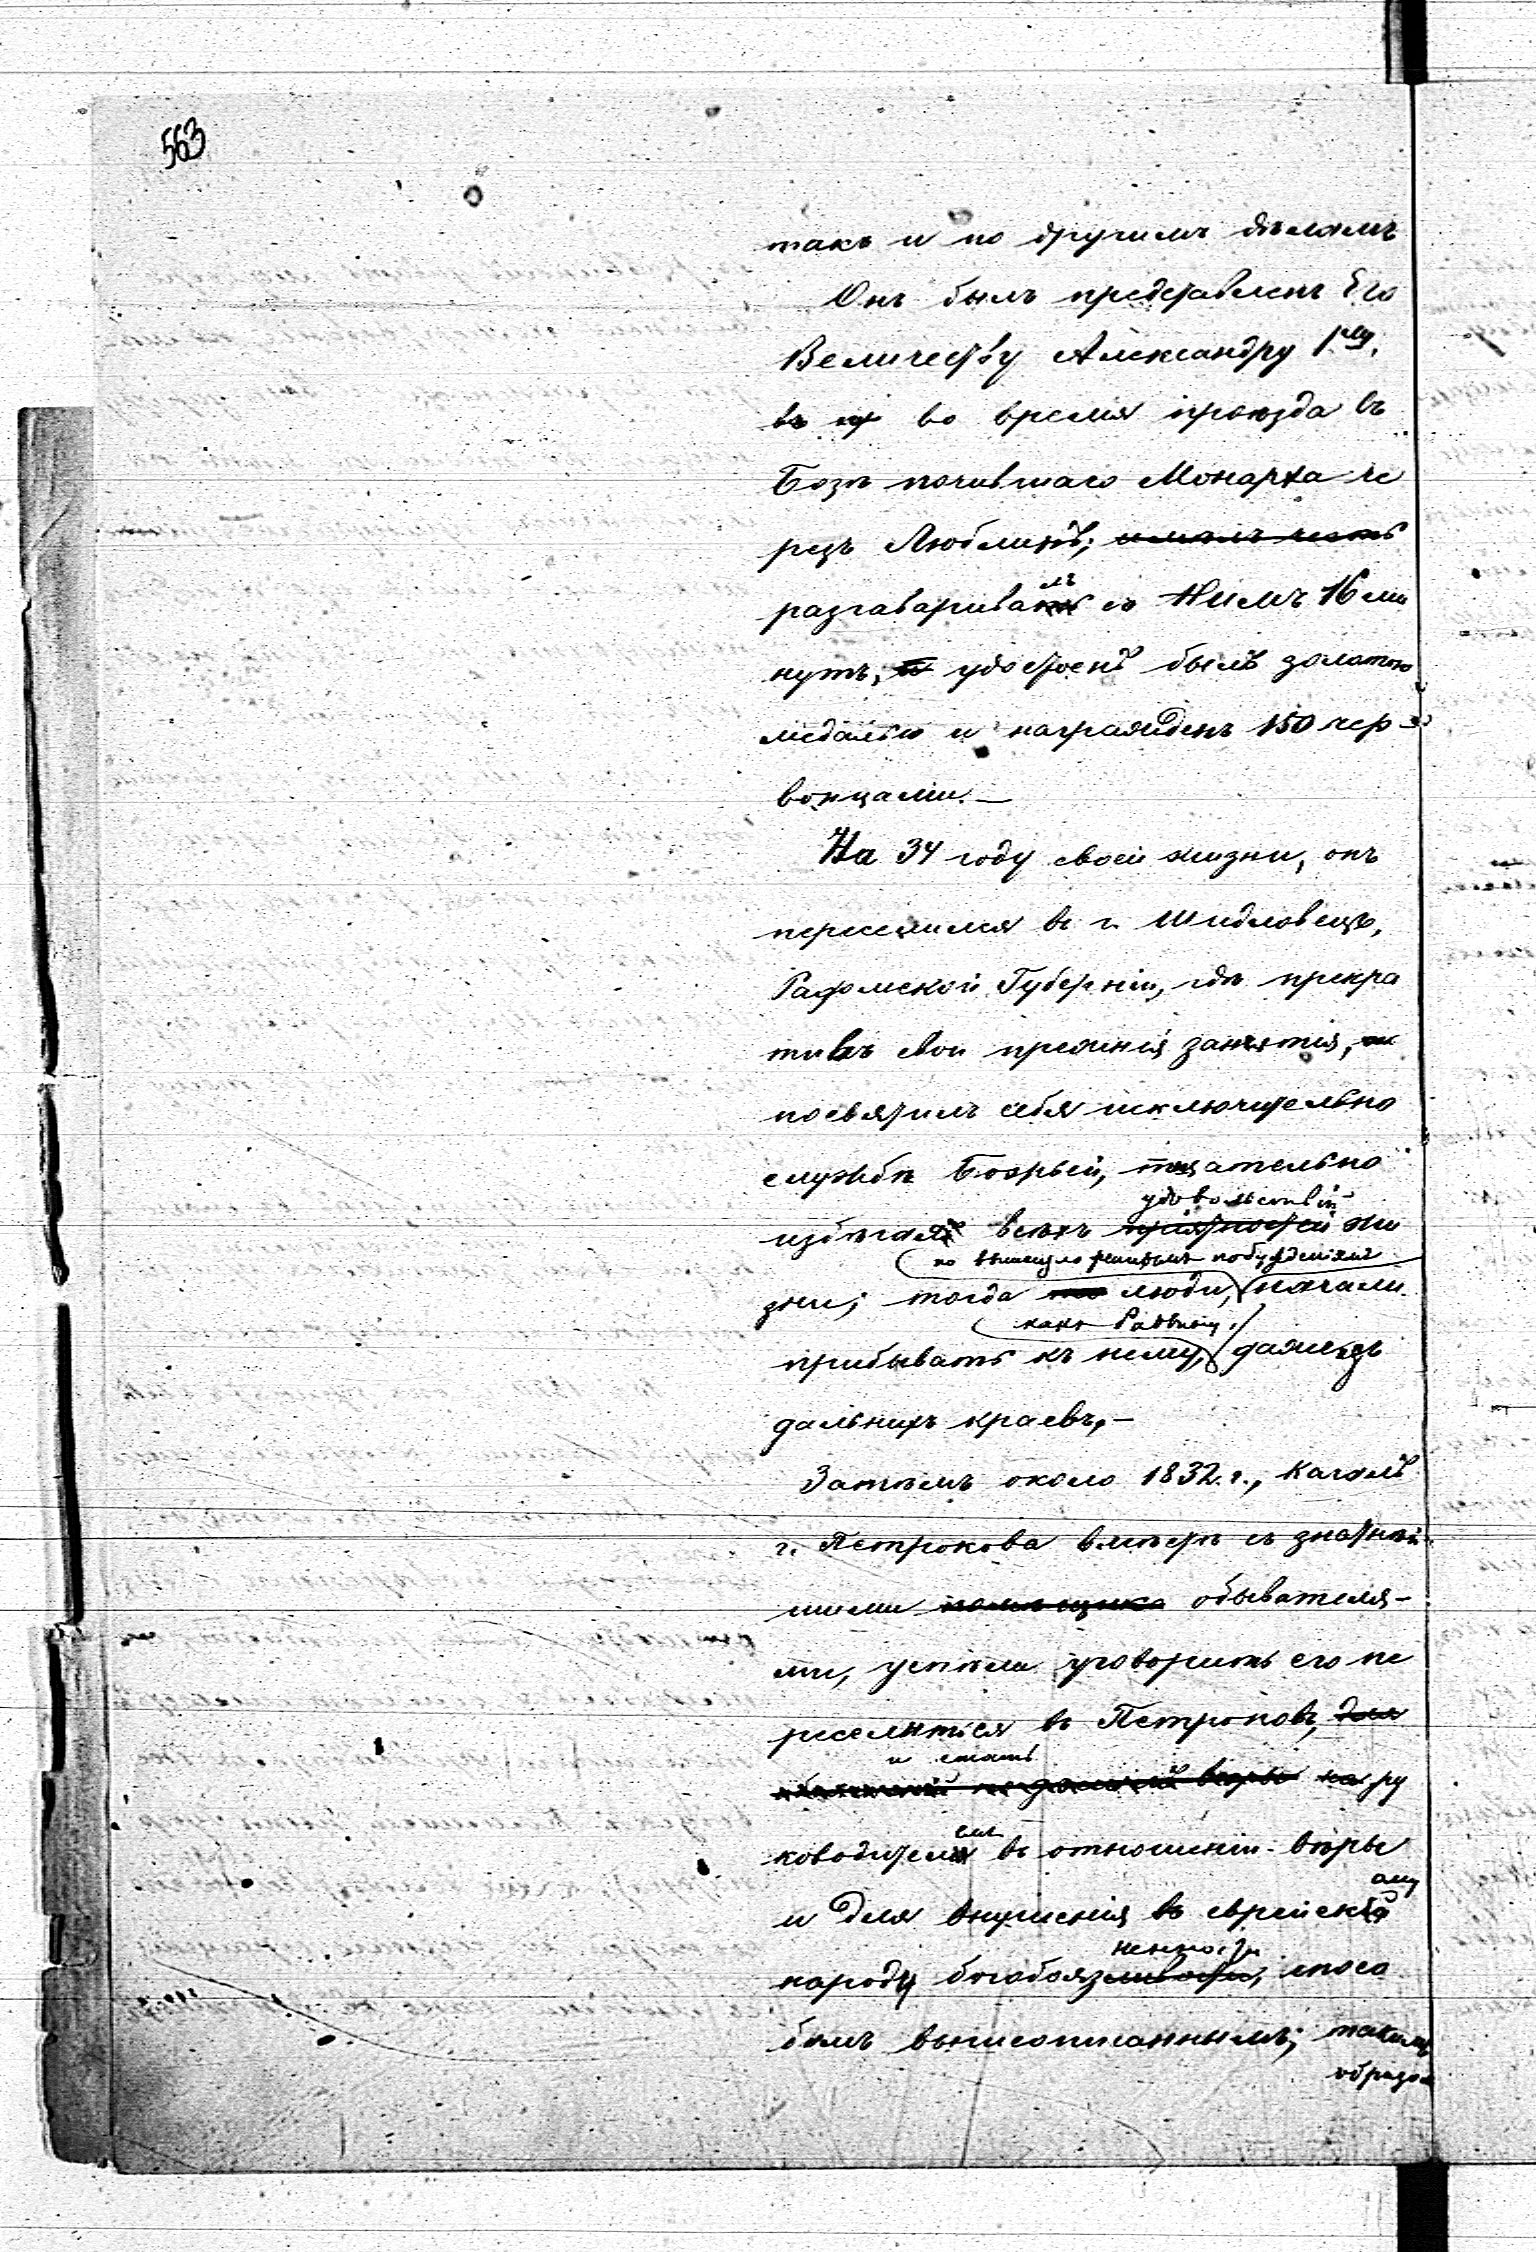 563
такъ и по другимъ дѣламъ
Онъ былъ представленъ Его
Величеству Александру 1му,
въ во время проѣзда въ
Бозѣ почившаго Монарха че
резъ Люблинъ; имѣлъ честь
лъ
разгаварива съ Нимъ 16 ми
нутъ, и удостоенъ былъ золотою
медалью и награжденъ 150 чер-
вонцами. —
На 34 году своей жизни, онъ
переселился въ г. Шидловецъ,
Радомской Губерніи, гдѣ прекра
тивъ свои прежнія занятія,
посвятилъ себя исключительно
службѣ Божьей, тщательно
удовольствій
избѣгая всѣхъ пріятностей жи
по вышеуломянутымъ побужденіямъ
зни; тогда люди, начали
какъ Раввину
прибывать къ нему, даже изъ
дальнихъ краевъ, —
Затѣмъ около 1832 г., Кагалъ
г. Петрокова вмѣстѣ съ знатнѣй
шими помѣщика обывателя-
ми, успѣли уговорить его пе
реселиться въ Петроковъ, для
и стать
на ру
емъ
ководител въ отношеніи вѣры
ому
и для внушенія въ еврейск
ненности
народу богобоязливости, спосо
бомъ вышеописаннымъ; такимъ
образом